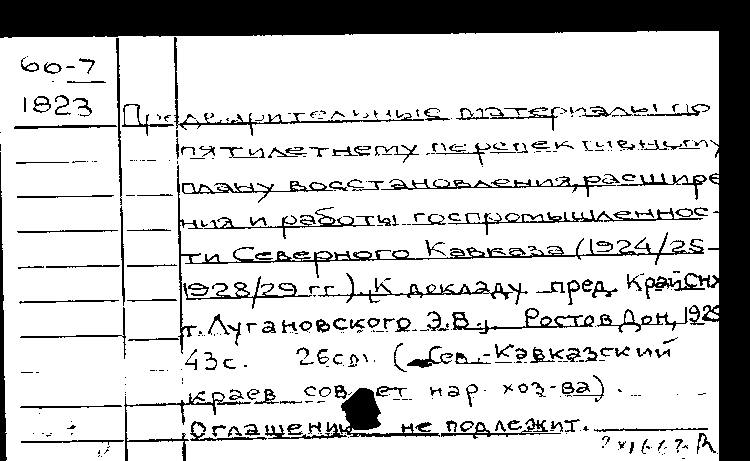 66-7
1823
Предварительные материалы по
пятилетнему перспективному
плану восстановления, расшире
ния и работы госпромышленнос-
ти Северного Кавказа (1924/25-
1928/29 гг). К докладу пред. КрайСНХ
т. Лугановского Э.В., Ростов Дон, 192
43с. 26см. (Сев.-Кавказский
краев совет нар. хоз-ва).
Оглашению не подлежит.